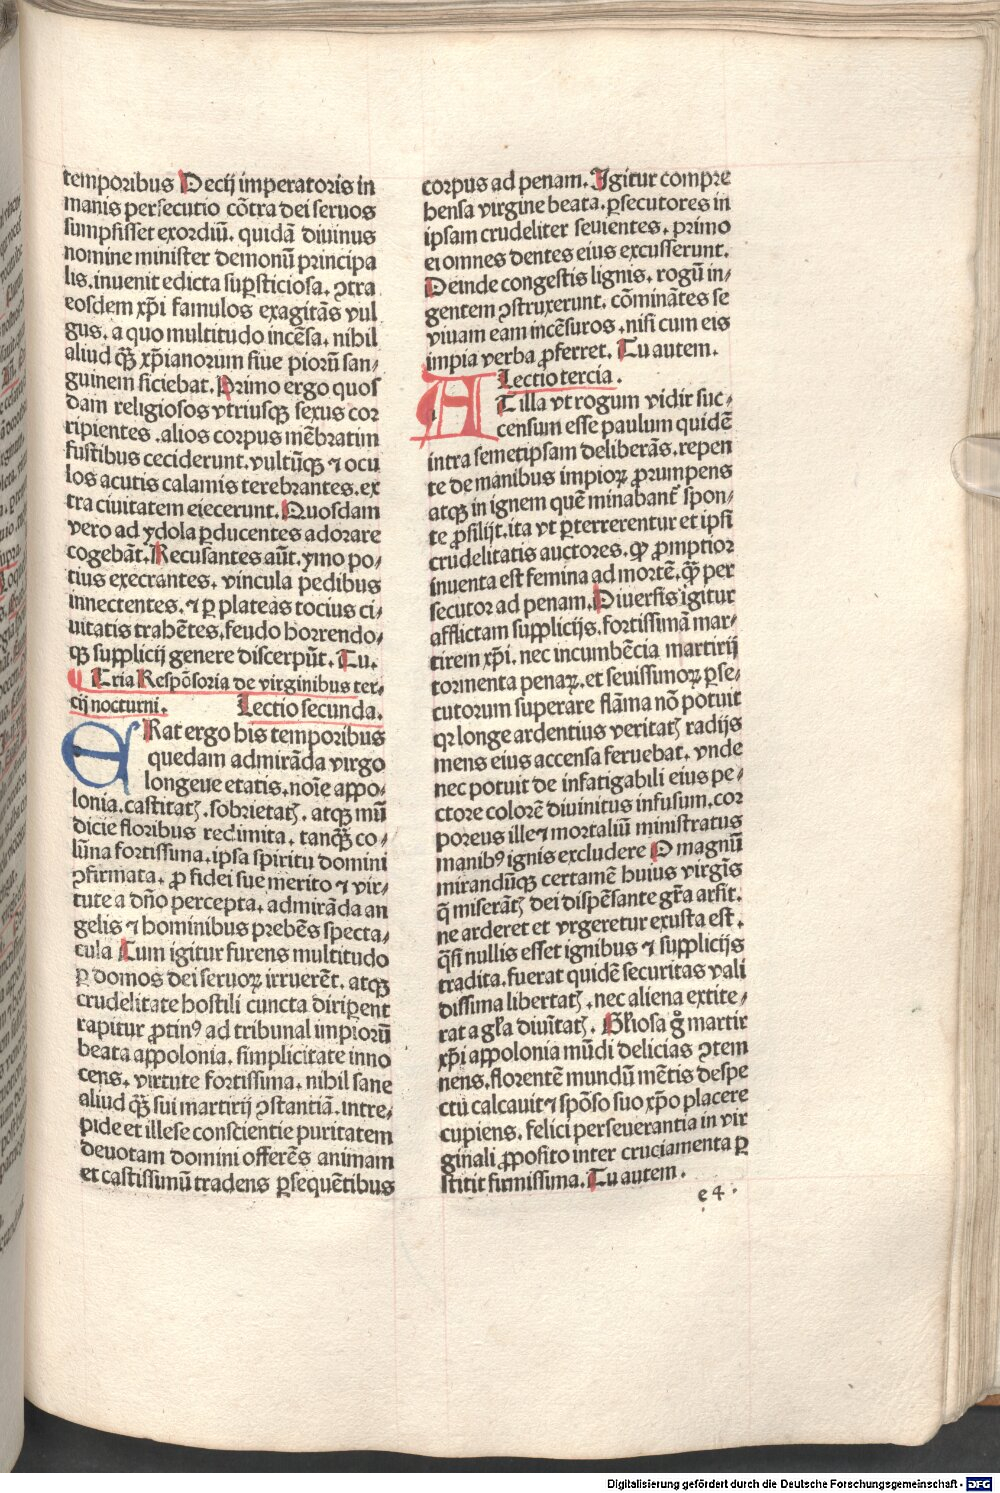 temporibus Decij imperatoris in
manis persecutio cōtra dei seruos
sumpsisset exordiū. quidā diuinus
nomine minister demonū principa
lis. inuenit edicta suꝑsticiosa. ꝯtra
eosdem xp̄i famulos exagitās vul
gus. a quo multitudo incēsa. nihil
aliud qꝫ̄ xp̄ianorum siue piorū san⸗
guinem siciebat. Primo ergo quos
dam religiosos vtriusqꝫ sexus cor
ripientes .alios corpus mēbratim
fustibus ceciderunt. vultūqꝫ ⁊ ocu
los acutis calamis terebrantes. ex
tra ciuitatem eiecerunt. Quosdam
vero ad ydola ꝑducentes adorare
cogebāt. Recusantes aūt. ymo po⸗
tius execrantes. vincula pedibus
innectentes. ⁊ ꝑ plateas tocius ci⸗
uitatis trahētes. feudo horrendo⸗
qꝫ supplicij genere discerpūt. Tu.
Tria Respōsoria de virginibus ter⸗
cij nocturni. Lectio secunda.
ERat ergo his temporibus
quedam admirāda virgo
longeue etatis. noīe appo⸗
lonia. castitatꝭ. sobrietatꝭ. atqꝫ mū
dicie floribus redimita. tanqꝫ̄ co⸗
lūna fortissima. ipsa spiritu domini
ꝯfirmata. ꝓ fidei sue merito ⁊ vir⸗
tute a dn̄o percepta. admirāda an
gelis ⁊ hominibus prebēs specta⸗
cula Cum igitur furens multitudo
ꝑ domos dei seruoꝝ irruerēt. atqꝫ
crudelitate hostili cuncta diriperent
rapitur ꝓtinꝰ ad tribunal impiorū
beata appolonia. simplicitate inno
cens. virtute fortissima. nihil sane
aliud qꝫ̄ sui martirij ꝯstantiā. intre⸗
pide et illese conscientie puritatem
deuotam domini offerēs animam
et castissimū tradens ꝑsequētibus
corpus ad penam. Igitur compre
hensa virgine beata. ꝑsecutores in
ipsam crudeliter seuientes. primo
ei omnes dentes eius excusserunt.
Deinde congestis lignis. rogū in⸗
gentem ꝯstruxerunt. cōminātes se
viuam eam incēsuros .nisi cum eis
impia verba ꝓferret. Tu autem.
Lectio tercia.
AT illa vt rogum vidit suc⸗
censum esse paulum quidē
intra semetipsam deliberās. repen
te de manibus impioꝝ ꝓrumpens
atqꝫ in ignem quē minabant᷑ spon⸗
te ꝓsilijt. ita vt ꝑterrerentur et ipsi
crudelitatis auctores. qꝙ ꝓmptior
inuenta est femina ad mortē. qꝫ̄ per
secutor ad penam. Diuersis igitur
afflictam supplicijs. fortissimā mar⸗
tirem xp̄i. nec incumbēcia martirij
tormenta penaꝝ. et seuissimoꝝ ꝑse⸗
cutorum superare flāma nō potuit
qꝛ longe ardentius veritatꝭ radijs
mens eius accensa feruebat. vnde
nec potuit de infatigabili eius pe⸗
ctore colorē diuinitus infusum. cor
poreus ille ⁊ mortaliū ministratus
manibꝰ ignis excludere O magnū
mirandūqꝫ certamē huius virgīs
q̄ miserātꝭ dei dispēsante gr̄a arsit.
ne arderet et vrgeretur exusta est.
qͣsi nullis esset ignibus ⁊ supplicijs
tradita. fuerat quidē securitas vali
dissima libertatꝭ. nec aliena extite⸗
rat a gl̄a diuītatꝭ. Gl̄iosa gͦ martir
xp̄i appolonia mūdi delicias ꝯtem
nens. florentē mundū mētis despe
ctu calcauit ⁊ spōso suo xp̄o placere
cupiens. felici perseuerantia in vir
ginali ꝓposito inter cruciamenta ꝑ
stitit firmissima. Tu autem.
e 4.
Digitalisierung gefördert durch die Deutsche Forschungsgemeinschaft - DFG